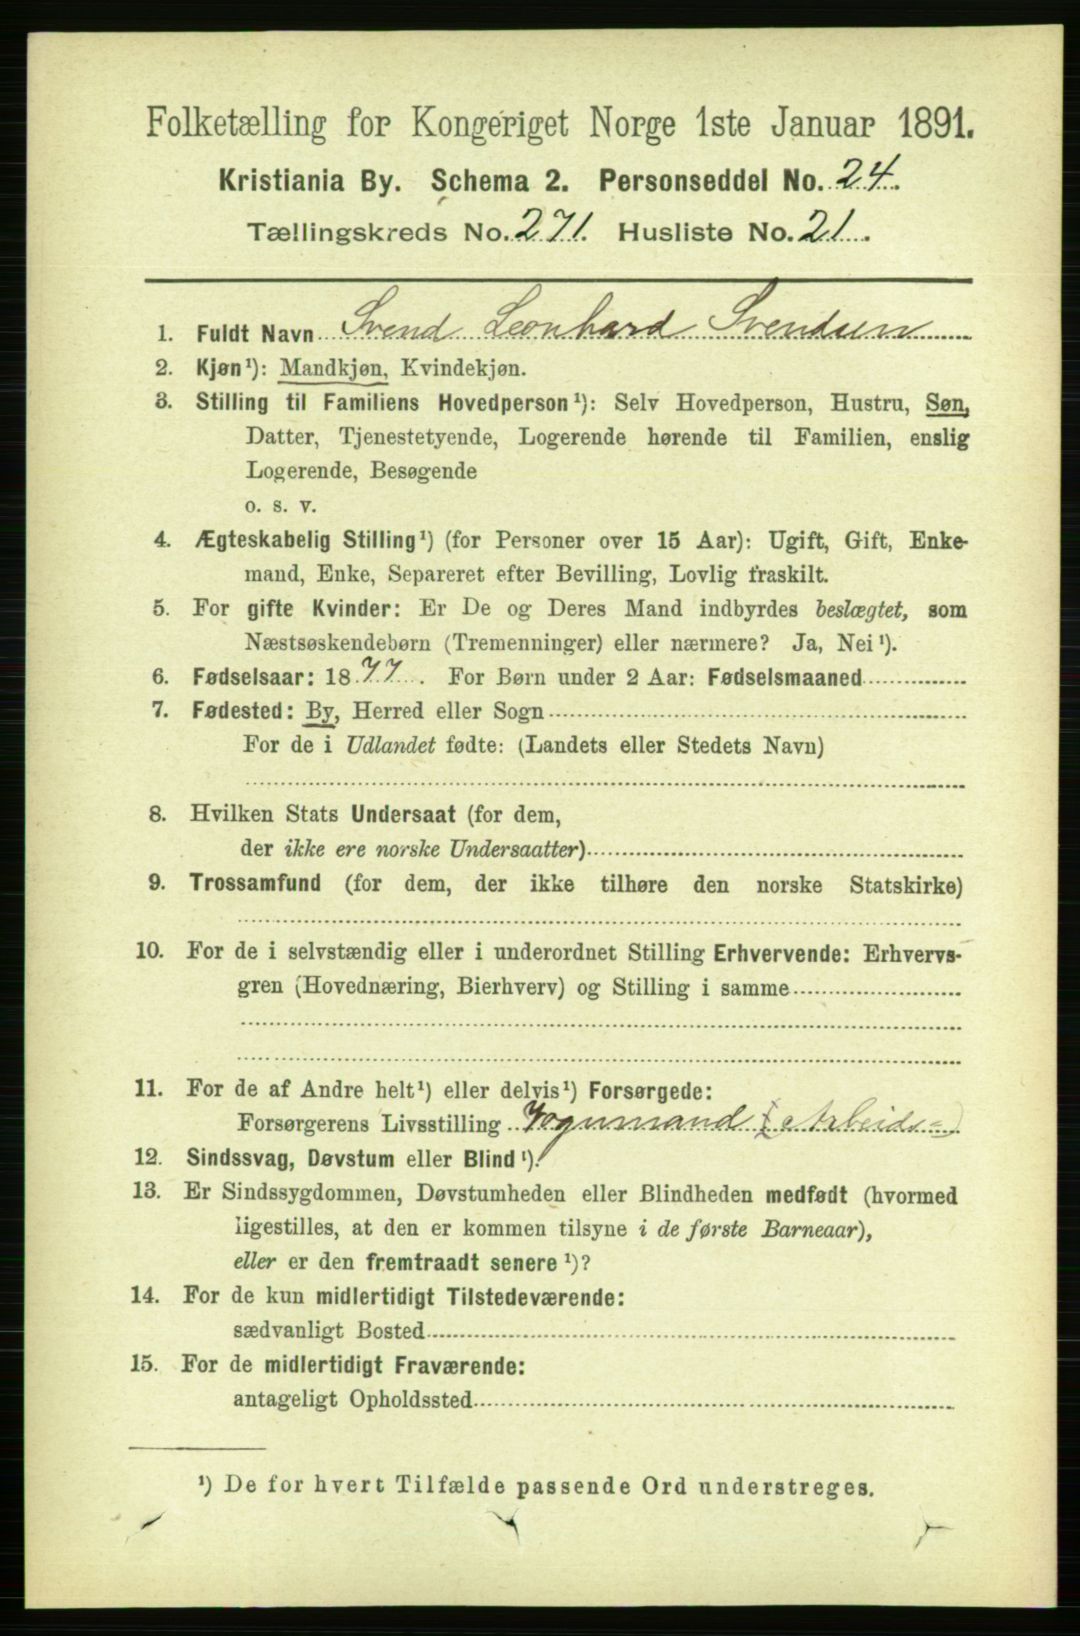 Folketælling for Kongeriget Norge 1ste Januar 1891.
Kristiania By. Schema 2. Personseddel No. 24.
Tællingskreds No. 271. Husliste No. 21.
1. Fuldt Navn Svend Leonhard Svendsen
2. Kjøn¹): Mandkjøn, Kvindekjøn.
3. Stilling til Familiens Hovedperson¹): Selv Hovedperson, Hustru, Søn,
Datter, Tjenestetyende, Logerende hørende til Familien, enslig
Logerende, Besøgende
o. s. v.
4. Ægteskabelig Stilling¹) (for Personer over 15 Aar): Ugift, Gift, Enke-
mand, Enke, Separeret efter Bevilling, Lovlig fraskilt.
5. For gifte Kvinder: Er De og Deres Mand indbyrdes beslægtet, som
Næstsøskendebørn (Tremenninger) eller nærmere? Ja, Nei¹).
6. Fødselsaar: 1877. For Børn under 2 Aar: Fødselsmaaned
7. Fødested: By, Herred eller Sogn
For de i Udlandet fødte: (Landets eller Stedets Navn)
8. Hvilken Stats Undersaat (for dem,
der ikke ere norske Undersaatter)
9. Trossamfund (for dem, der ikke tilhøre den norske Statskirke)
10. For de i selvstændig eller i underordnet Stilling Erhvervende: Erhvervs-
gren (Hovednæring, Bierhverv) og Stilling i samme
11. For de af Andre helt¹) eller delvis¹) Forsørgede:
Forsørgerens Livsstilling Vognmand (Arbeids=)
12. Sindssvag, Døvstum eller Blind¹).
13. Er Sindssygdommen, Døvstumheden eller Blindheden medfødt (hvormed
ligestilles, at den er kommen tilsyne i de første Barneaar),
eller er den fremtraadt senere¹)?
14. For de kun midlertidigt Tilstedeværende:
sædvanligt Bosted
15. For de midlertidigt Fraværende:
antageligt Opholdssted
¹) De for hvert Tilfælde passende Ord understreges.